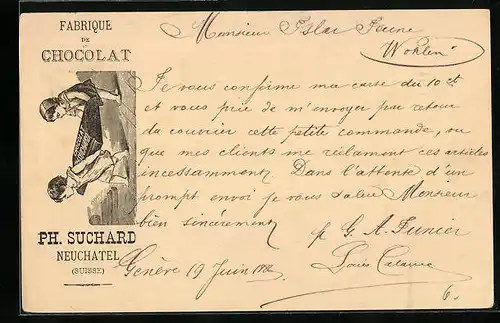 FABRIQUE
DE
CHOCOLAT
PH. SUCHARD
NEUCHATEL
(SUISSE)
Monsieur Isler Jeune
Wohlen
Je vous confirme ma carte du 10 ct
et vous prie de m'envoyer par retour
du courrier cette petite commande, vu
que mes clients me réclament ces articles
incessamment. Dans l'attente d'un
prompt envoi je vous salue Monsieur
bien sincèrement
p G. A. Junier
Louis
Genève 19 Juin
6.